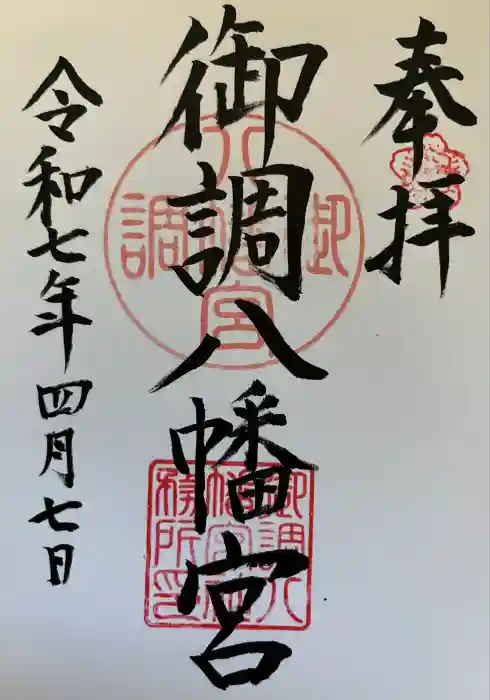 奉拝
御調八幡宮
令和七年四月七日
御調八
幡宮社
務所印